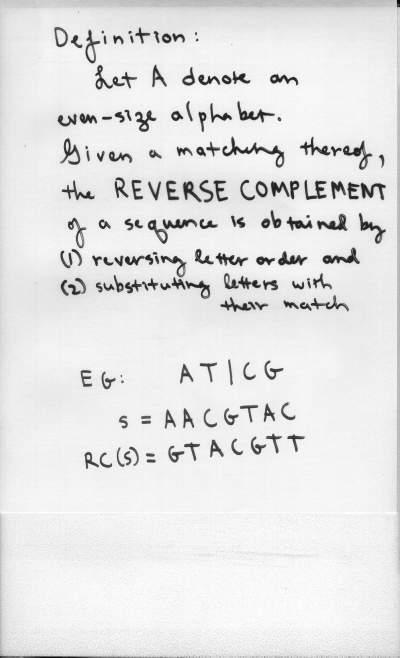 Definition:
Let A denote an
even-size alphabet.
Given a matching thereof,
the REVERSE COMPLEMENT
of a sequence is obtained by
(1) reversing letter order and
(2) substituting letters with
their match
EG: AT|CG
S = AACGTAC
RC(S) = GTACGTT